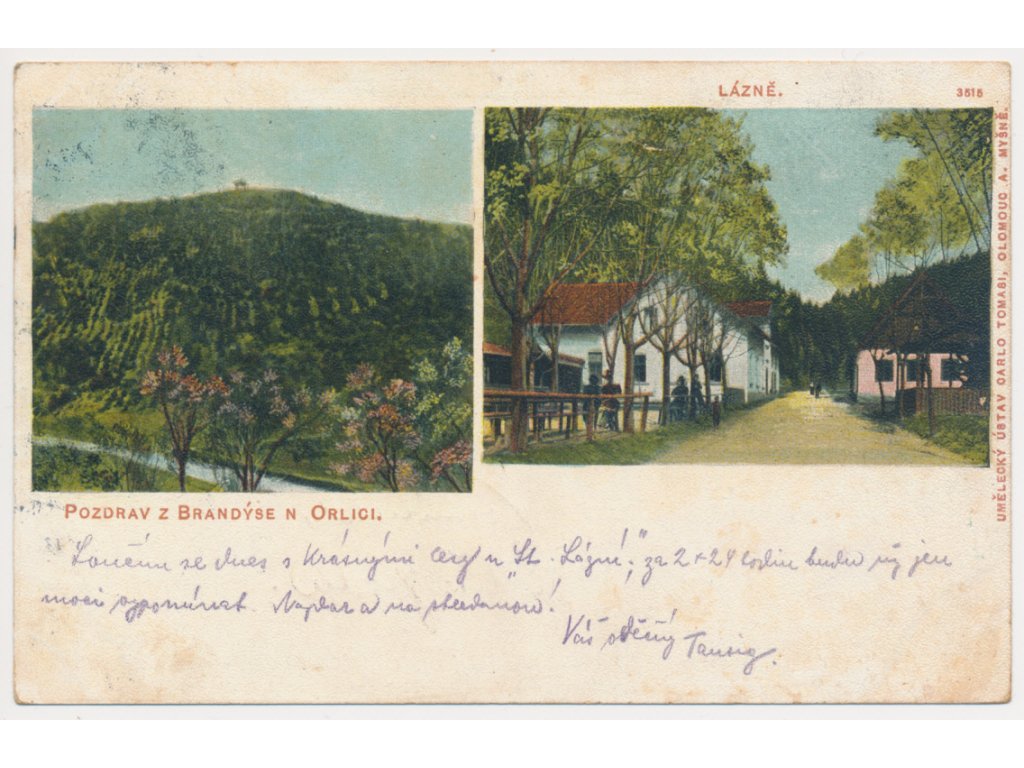 LÁZNĚ.
3515
UMĚLECKÝ ÚSTAV CARLO TOMASI, OLOMOUC A. MYŠNĚ.
POZDRAV Z BRANDÝSE N ORLICI.
Loučím se dnes s krásnými lesy u "St. Lázní"; za 2 × 24 hodin budu již jen
moci vzpomínat. Nazdar a na shledanou!
Váš vděčný Taussig.